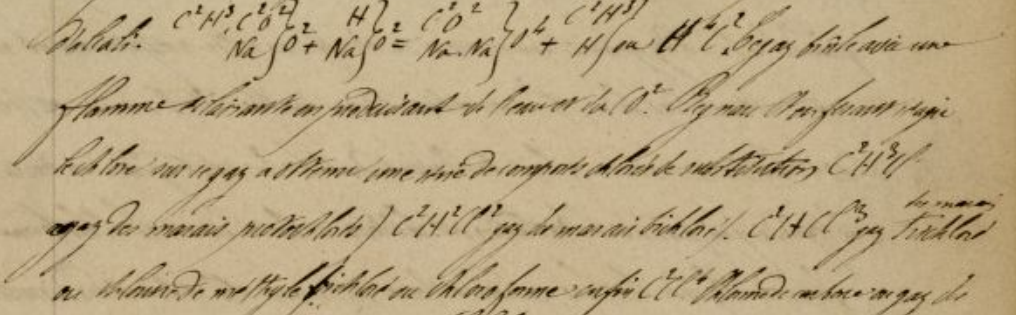 d'alcali. C²H³.C²O² Na } O² + H Na } O² = C²O² Na.Na } O⁴ + C²H³ H } ou H⁴C². Ce gaz brûle avec une
flamme éclairante en produisant de l'eau et du CO². Regnault en faisant réagir
le chlore sur ce gaz a obtenu une série de composés chlorés de substitution C²H³Cl
gaz des marais protochloré) C²H²Cl² gaz des marais bichloré). C²HCl³ gaz des marais trichloré
ou chlorure de méthyle bichloré ou chloroforme enfin C²Cl⁴ Chlorure de carbone ou gaz des